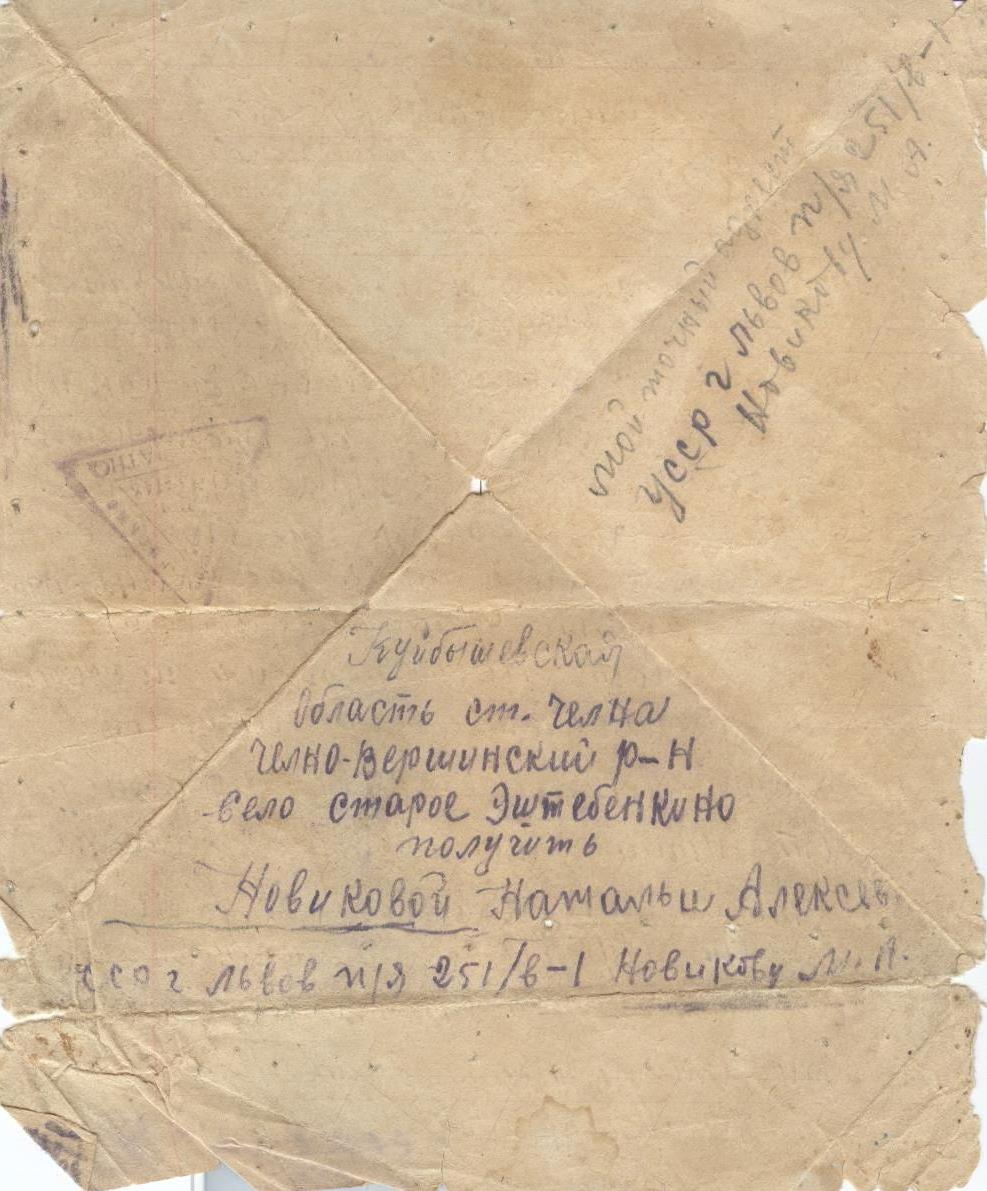 мой точный адрест
УССР г Львов п/я 251/в-1
Новикову М. А.
Куйбышевская
область ст. Челна
Челно-Вершинский р-н
село старое Эштебенкино
получить
Новиковой Натальи Алексев
ссо г Львов п/я 251/в-1 Новикову М. А.